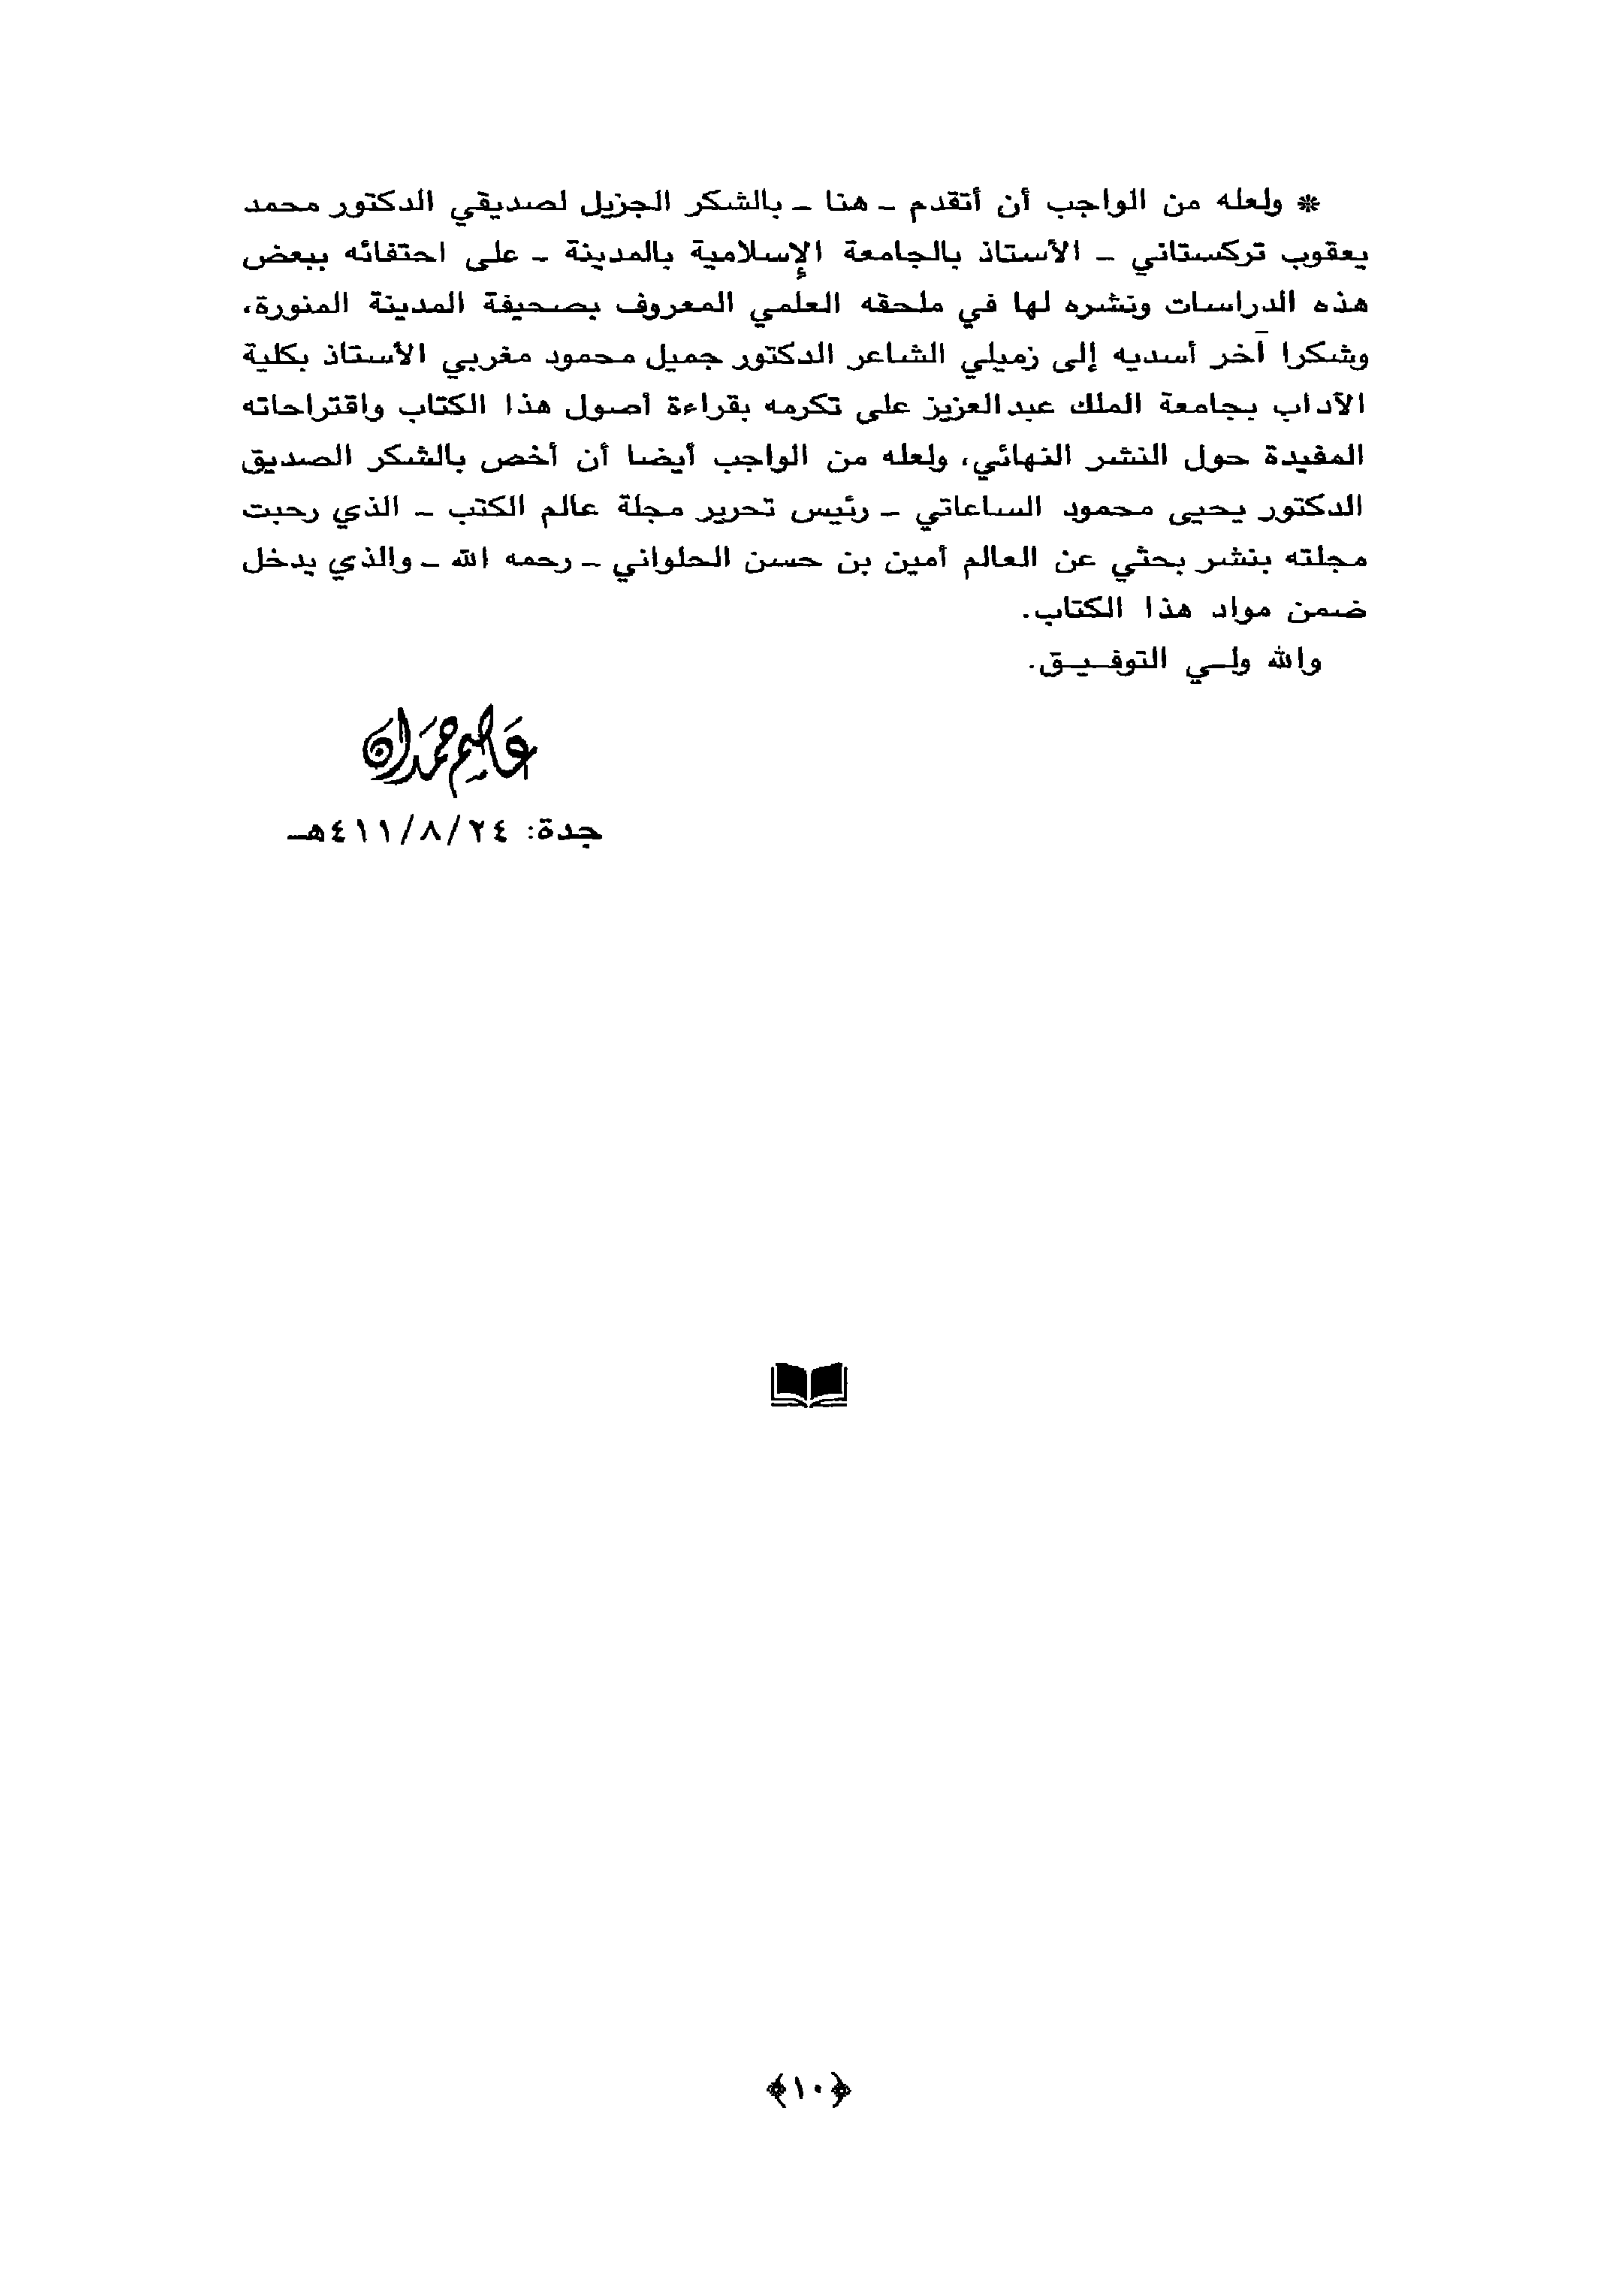 * ولعله من الواجب أن أتقدم ـ هنا ـ بالشكر الجزيل لصديقي الدكتور محمد
يعقوب تركستاني ـ الأستاذ بالجامعة الإسلامية بالمدينة ـ على احتفائه ببعض
هذه الدراسات ونشره لها في ملحقه العلمي المعروف بصحيفة المدينة المنورة،
وشكرا آخر أسديه إلى زميلي الشاعر الدكتور جميل محمود مغربي الأستاذ بكلية
الآداب بجامعة الملك عبدالعزيز على تكرمه بقراءة أصول هذا الكتاب واقتراحاته
المفيدة حول النشر النهائي، ولعله من الواجب أيضا أن أخص بالشكر الصديق
الدكتور يحيى محمود الساعاتي ـ رئيس تحرير مجلة عالم الكتب ـ الذي رحبت
مجلته بنشر بحثي عن العالم أمين بن حسن الحلواني ـ رحمه الله ـ والذي يدخل
ضمن مواد هذا الكتاب.
والله ولـي التوفـيـق.
عاصم حمدان
جدة: ٢٤/٨/٤١١هـ
﴿١٠﴾